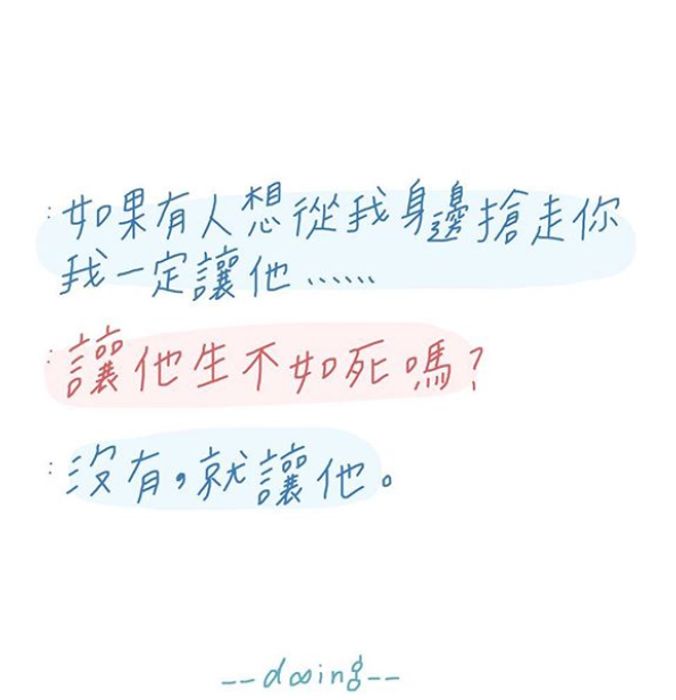 ：如果有人想從我身邊搶走你
我一定讓他……
：讓他生不如死嗎？
：沒有，就讓他。
--dooing--